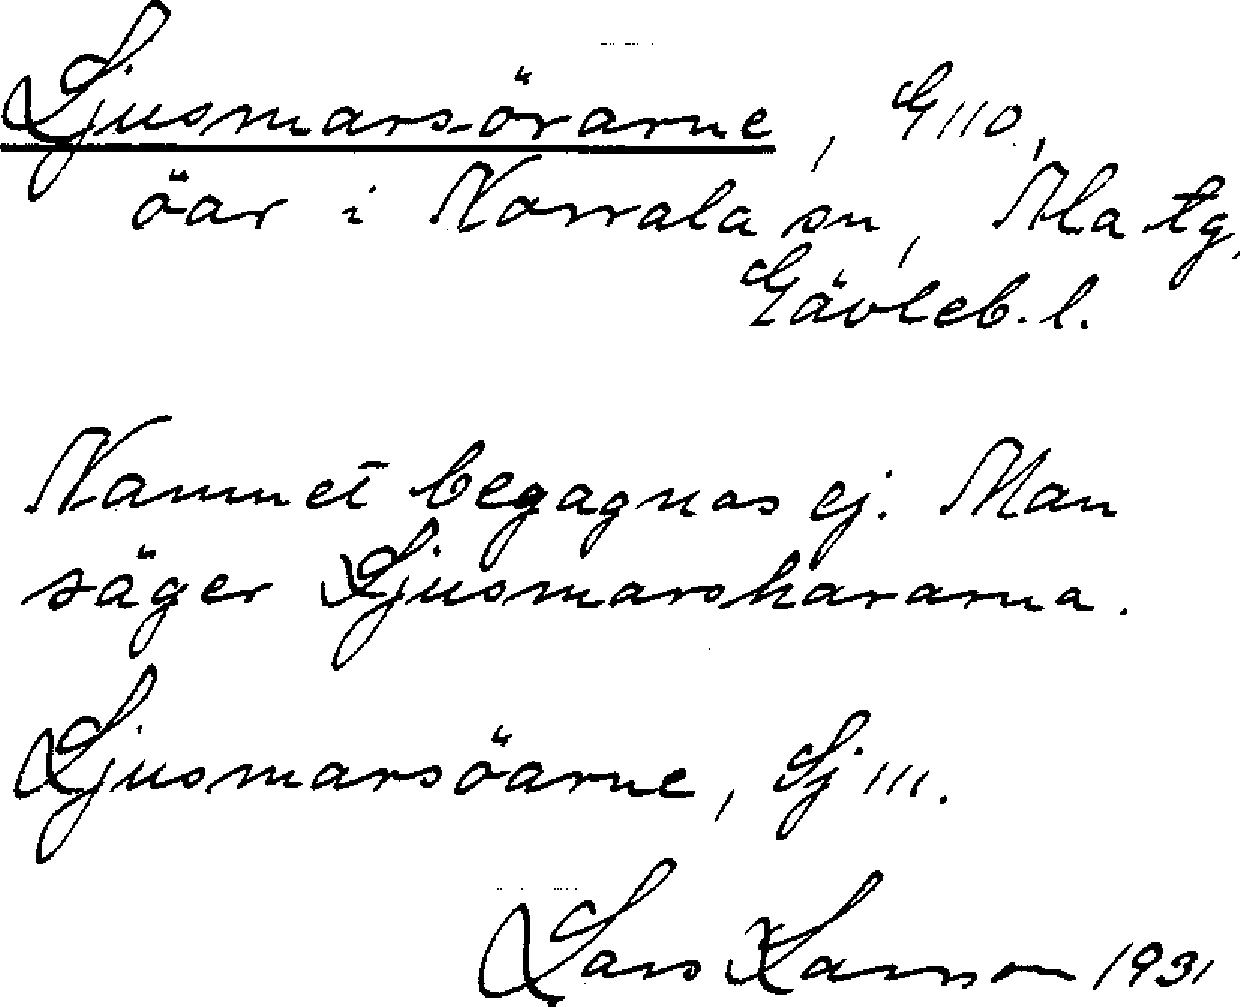 Ljusmars-örarne, G 110,
öar i Norrala sn, Ala tg,
Gävleb. l.
Namnet begagnas ej. Man
säger Ljusmarshararna.
Ljusmarsöarne, Sj 111.
Lars Larsson 1931